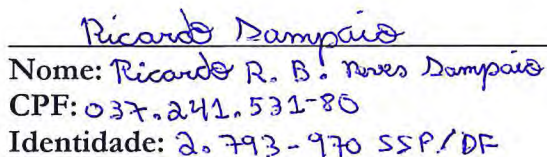 Ricardo Sampaio
Nome: Ricardo R. B. Neves Sampaio
CPF: 037.241.531-80
Identidade: 2.793-970 SSP/DF